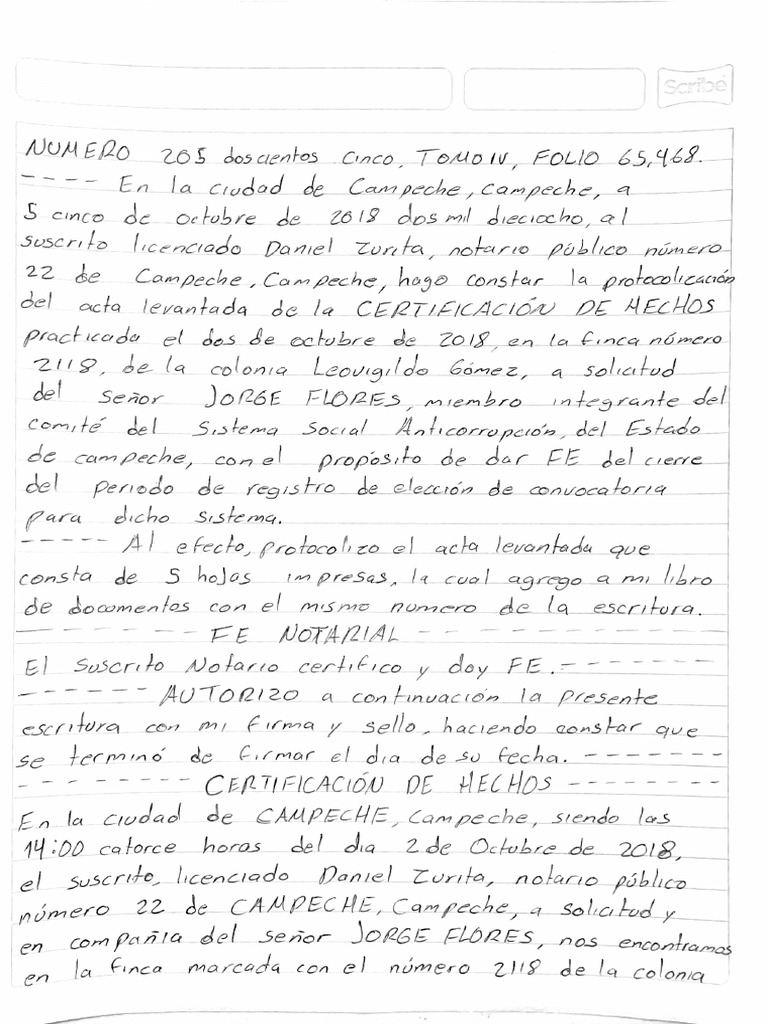 Scribe
NUMERO 205 doscientos cinco, TOMO IV, FOLIO 65,468.
---- En la ciudad de Campeche, Campeche, a
5 cinco de octubre de 2018 dos mil dieciocho, al
suscrito licenciado Daniel Zurita, notario público número
22 de Campeche, Campeche, hago constar la protocolización
del acta levantada de la CERTIFICACIÓN DE HECHOS
practicada el dos de octubre de 2018, en la finca número
2118, de la colonia Leovigildo Gómez, a solicitud
del señor JORGE FLORES, miembro integrante del
comité del Sistema Social Anticorrupción, del Estado
de campeche, con el propósito de dar FE del cierre
del periodo de registro de elección de convocatoria
para dicho sistema.
----- Al efecto, protocolizo el acta levantada que
consta de 5 hojas impresas, la cual agrego a mi libro
de documentos con el mismo numero de la escritura.
--------- FE NOTARIAL ---------
El Suscrito Notario certifico y doy FE.-------
------ AUTORIZO a continuación la presente
escritura con mi firma y sello, haciendo constar que
se terminó de firmar el dia de su fecha. -------
-------- CERTIFICACIÓN DE HECHOS --------
En la ciudad de CAMPECHE, Campeche, siendo las
14:00 catorce horas del dia 2 de Octubre de 2018,
el suscrito, licenciado Daniel Zurita, notario público
número 22 de CAMPECHE, Campeche, a solicitud y
en compañia del señor JORGE FLORES, nos encontramos
en la finca marcada con el número 2118 de la colonia